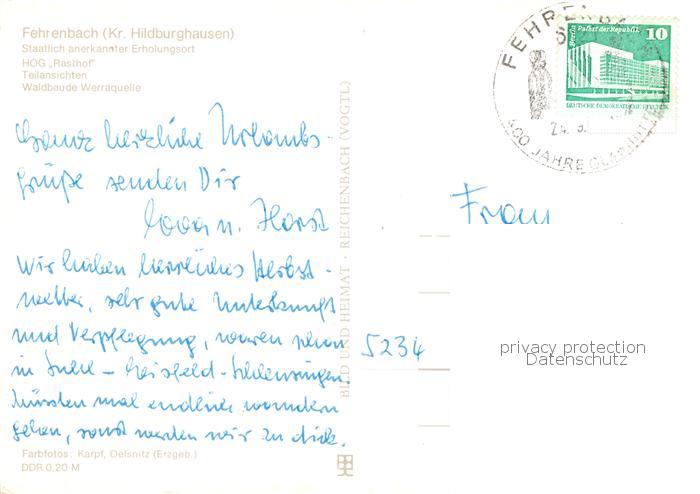 Fehrenbach (Kr. Hildburghausen)
Staatlich anerkannter Erholungsort
HOG „Rasthof"
Teilansichten
Waldbaude Werraquelle
Ganz herzliche Urlaubs-
grüße senden Dir
u. Horst
Wir haben herrliches Herbst-
wetter, sehr gute Unterkunft
und Verpflegung, waren schon
in Suhl – Eisfeld – Schleusingen,
müssten mal endlich wandern
gehen, sonst werden wir zu dick.
Farbfotos: Karpf, Oelsnitz (Erzgeb.)
DDR 0,20 M
BILD UND HEIMAT · REICHENBACH (VOGTL)
5234
FEHRENBA
400 JAHRE GLASHÜTTE
24.
Berlin Palast der Republik
10
DEUTSCHE DEMOKRATISCHE REPUBLIK
Frau
privacy protection
Datenschutz